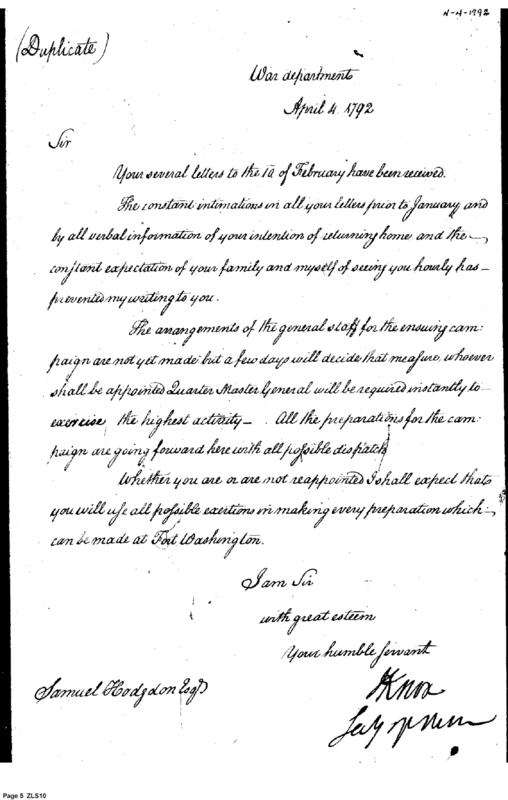 4-4-1792
(Duplicate)
War department
April 4. 1792
Sir
Your several letters to the 10 of February have been received.
The constant intimations in all your letters prior to January, and
by all verbal information of your intention of returning home and the
constant expectation of your family and myself of seeing you hourly has
prevented my writing to you.
The arrangements of the general staff for the ensuing cam:
paign are not yet made but a few days will decide that measure, whoever
shall be appointed Quarter Master General will be required instantly to
exercise the highest activity — All the preparations for the cam:
paign are going forward here with all possible dispatch
Whether you are or are not reappointed I shall expect that
you will use all possible exertions in making every preparation which
can be made at Fort Washington.
I am Sir
with great esteem
Your humble Servant
HKnox
Secy of War
Samuel Hodgdon Esqr
Page 5 ZLS10